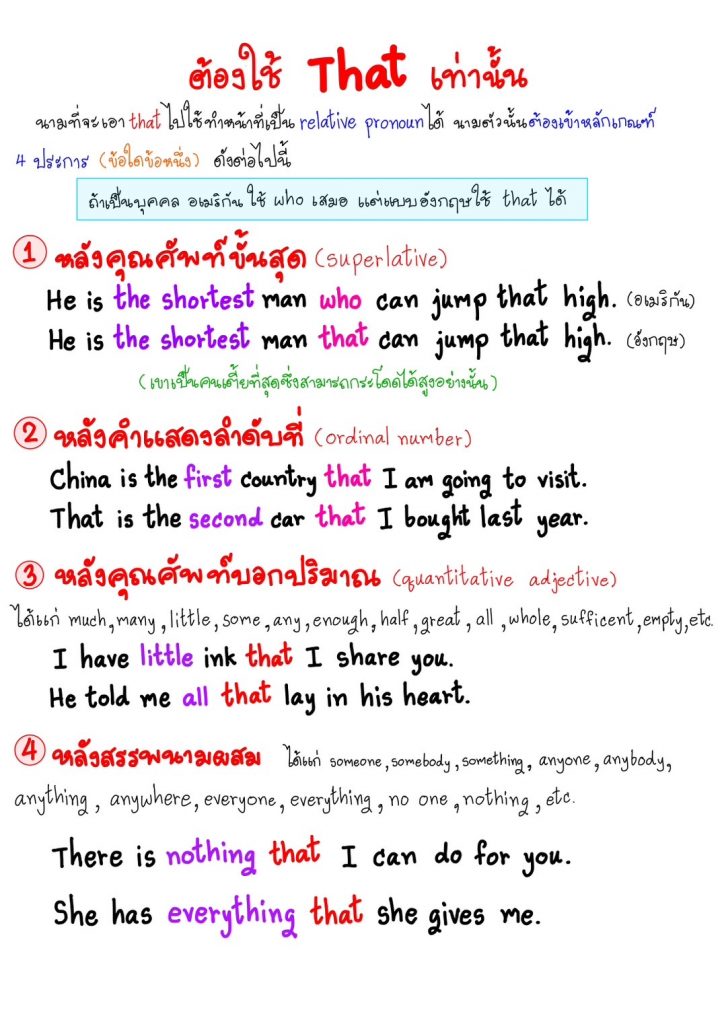 ต้องใช้ That เท่านั้น
นามที่จะเอา that ไปใช้ทำหน้าที่เป็น relative pronoun ได้ นามตัวนั้นต้องเข้าหลักเกณฑ์
4 ประการ (ข้อใดข้อหนึ่ง) ดังต่อไปนี้
ถ้าเป็นบุคคล อเมริกัน ใช้ who เสมอ แต่แบบอังกฤษใช้ that ได้
1 หลังคุณศัพท์ขั้นสุด (superlative)
He is the shortest man who can jump that high. (อเมริกัน)
He is the shortest man that can jump that high. (อังกฤษ)
(เขาเป็นคนเตี้ยที่สุดซึ่งสามารถกระโดดได้สูงอย่างนั้น)
2 หลังคำแสดงลำดับที่ (ordinal number)
China is the first country that I am going to visit.
That is the second car that I bought last year.
3 หลังคุณศัพท์บอกปริมาณ (quantitative adjective)
ได้แก่ much, many, little, some, any, enough, half, great, all, whole, sufficent, empty, etc.
I have little ink that I share you.
He told me all that lay in his heart.
4 หลังสรรพนามผสม ได้แก่ someone, somebody, something, anyone, anybody,
anything, anywhere, everyone, everything, no one, nothing, etc.
There is nothing that I can do for you.
She has everything that she gives me.